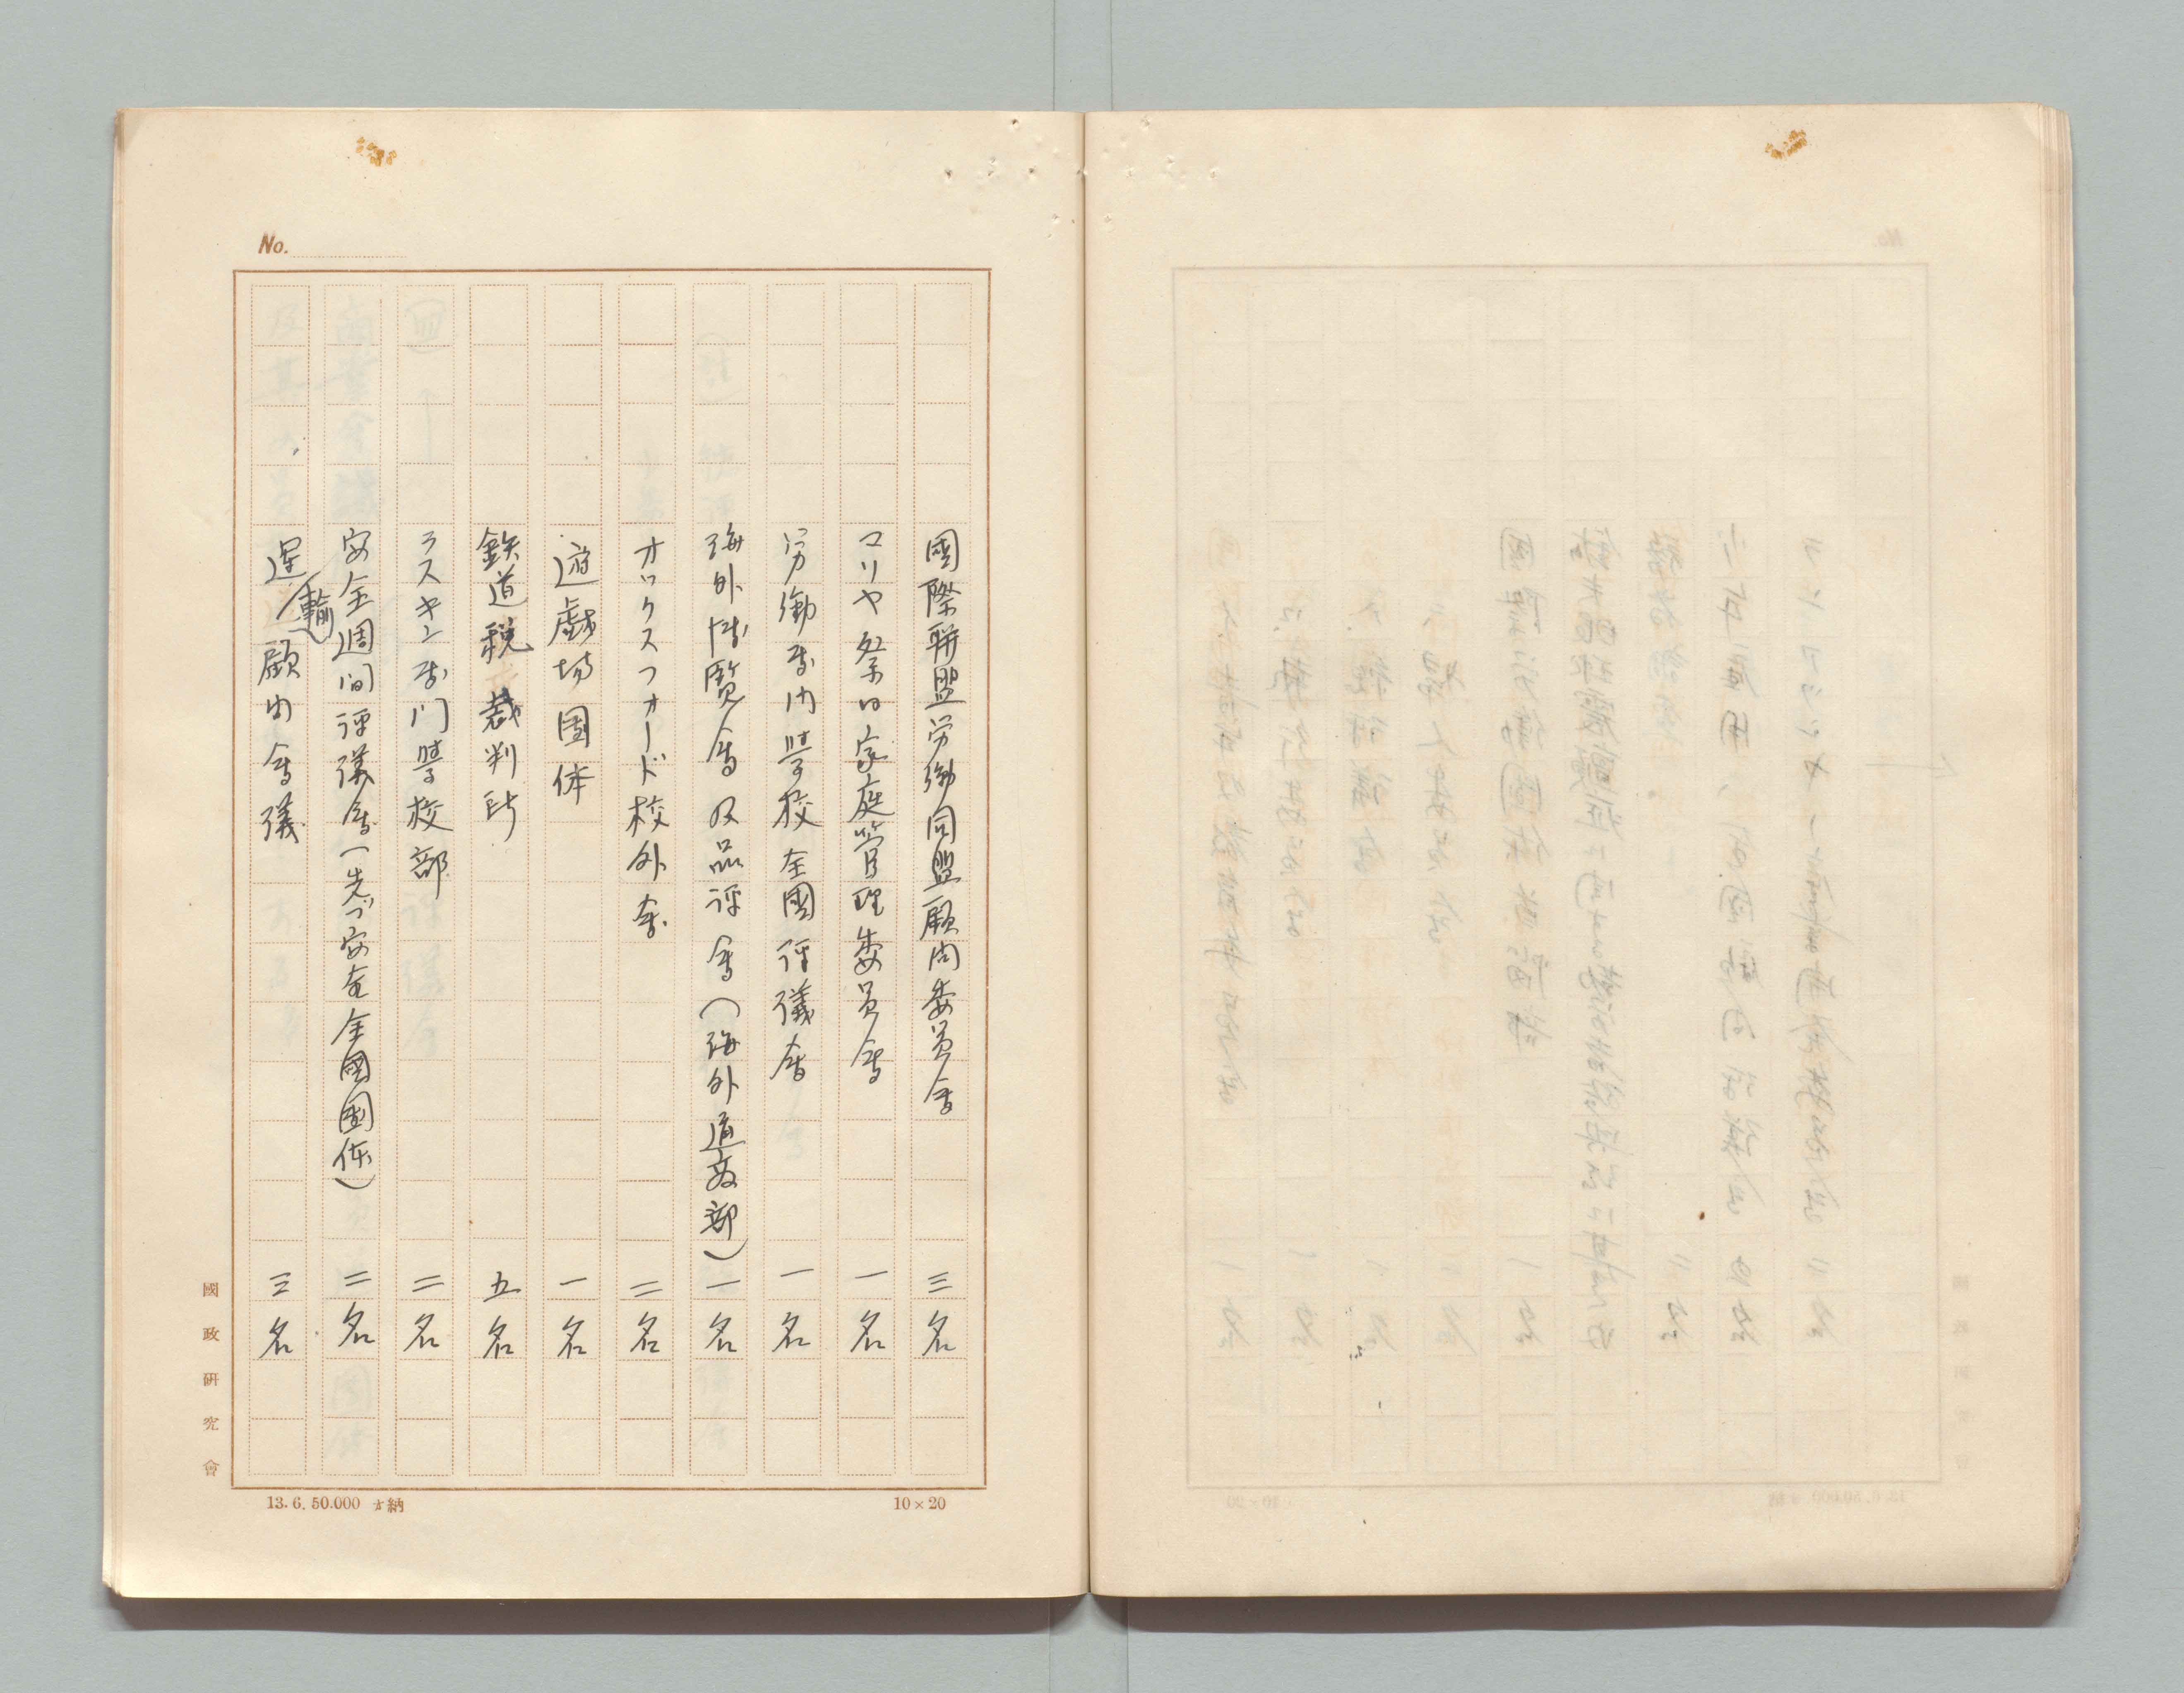 No.
國際聯盟労働同盟顧問委員会 三名
マリヤ祭日家庭管理委員会 一名
労働者内學校全國評議会 一名
海外博覧会及品評会(海外通商部) 一名
オックスフォード校外者 二名
遊戯場團体 一名
鉄道税裁判所 五名
ラスキン専門學校部 二名
安全週间評議会(先づ安全全國團体) 二名
運輸顧問会議 三名
國政研究會
13.6.50.000 納
10×20